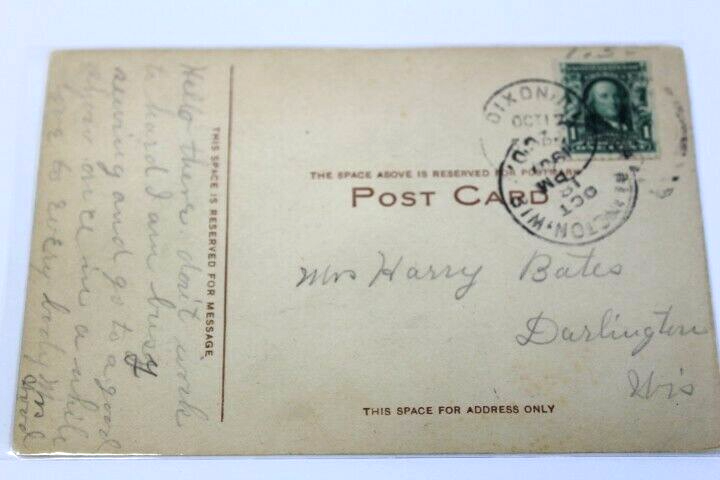 Hello there don't work
to hard I am busy
sewing and go to a good
show once in a while
love to every body Mrs
Wood
THIS SPACE IS RESERVED FOR MESSAGE
THE SPACE ABOVE IS RESERVED FOR POSTMARK
POST CARD
DIXON, ILL
OCT 17
OCT
1 PM
1907
Mrs Harry Bates
Darlington
Wis
THIS SPACE FOR ADDRESS ONLY